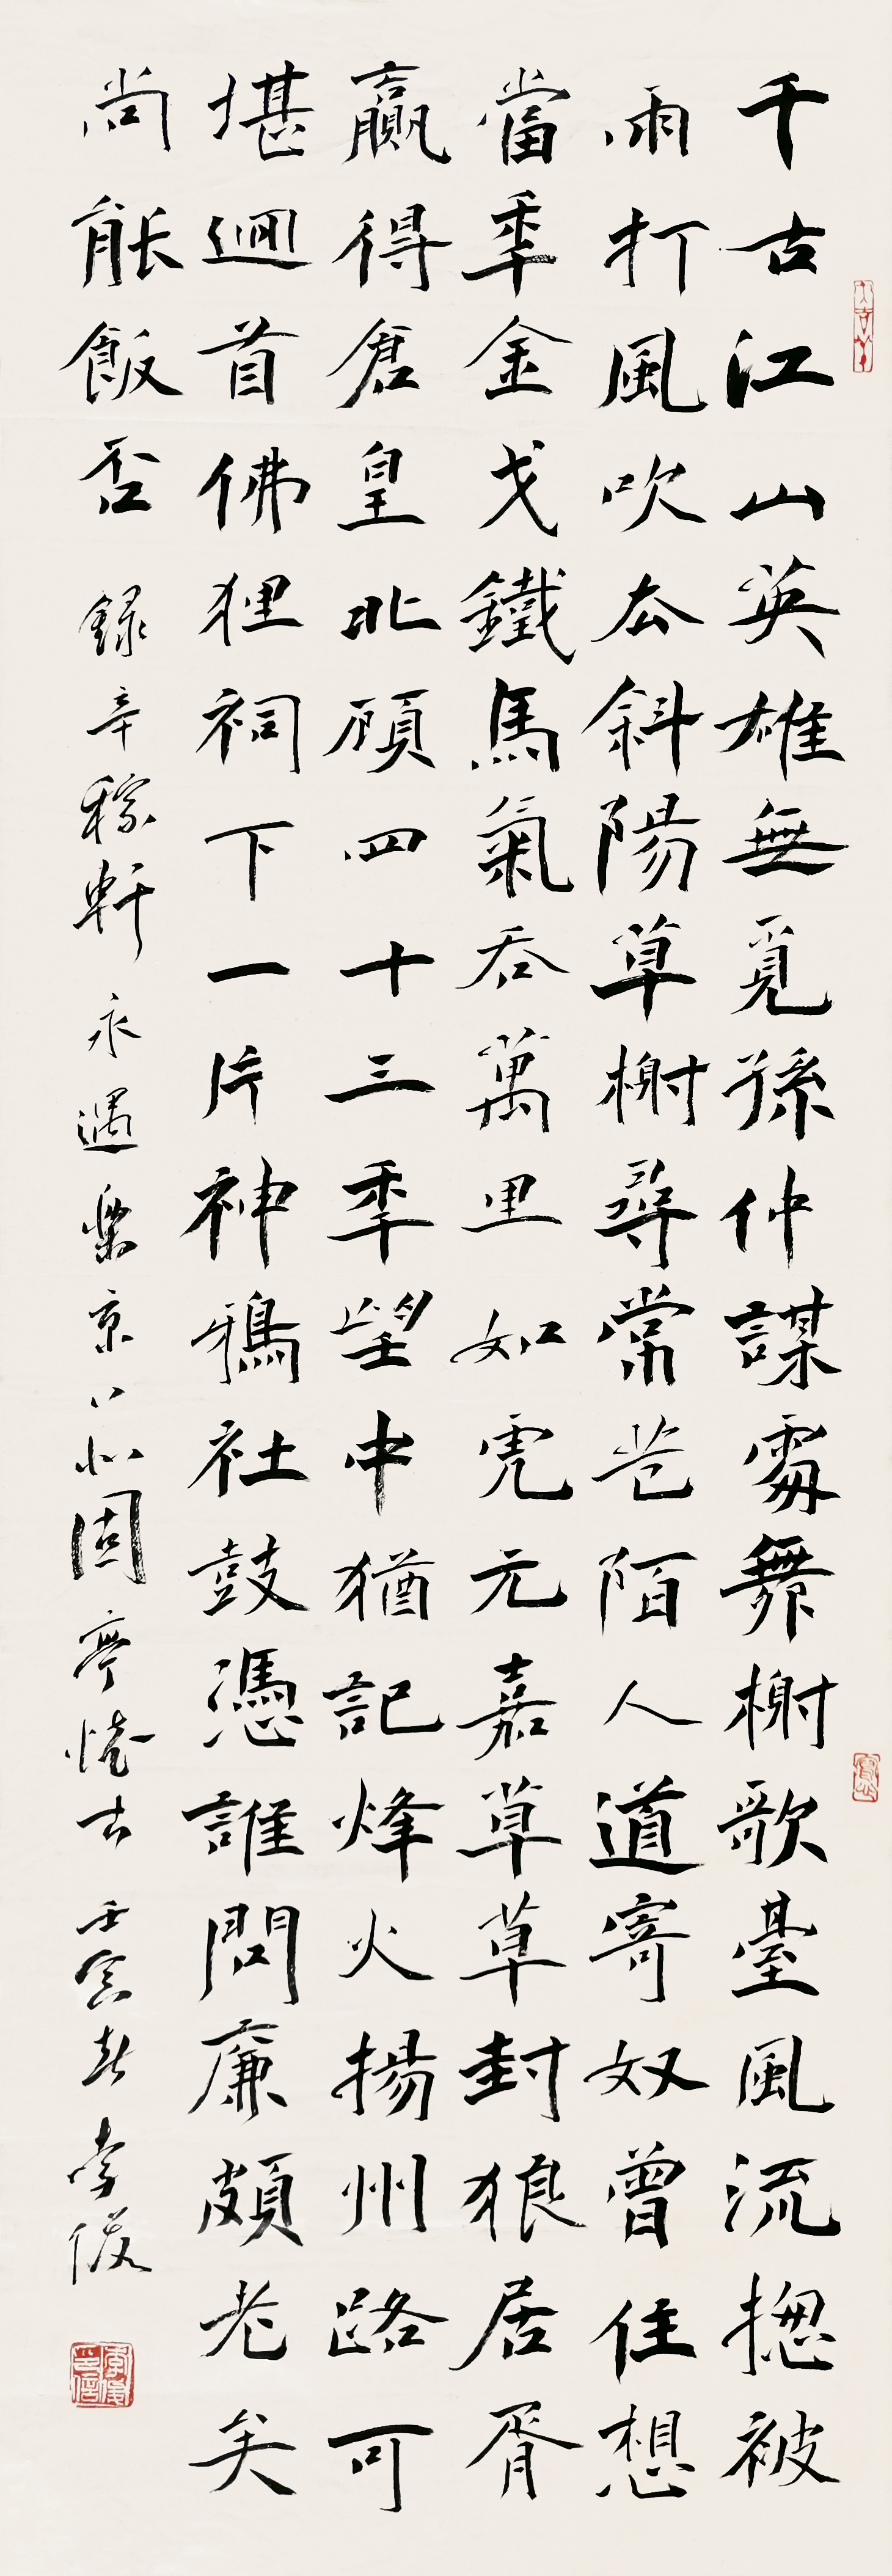 千古江山英雄無覓孫仲謀處舞榭歌臺風流揔被
雨打風吹去斜陽草樹尋常巷陌人道寄奴曾住想
當年金戈鐵馬氣吞萬里如虎元嘉草草封狼居胥
贏得倉皇北顧四十三年望中猶記烽火揚州路可
堪迴首佛狸祠下一片神鴉社鼓憑誰問廉頗老矣
尚能飯否 錄辛稼軒永遇樂京口北固亭懷古 壬寅春 李俊